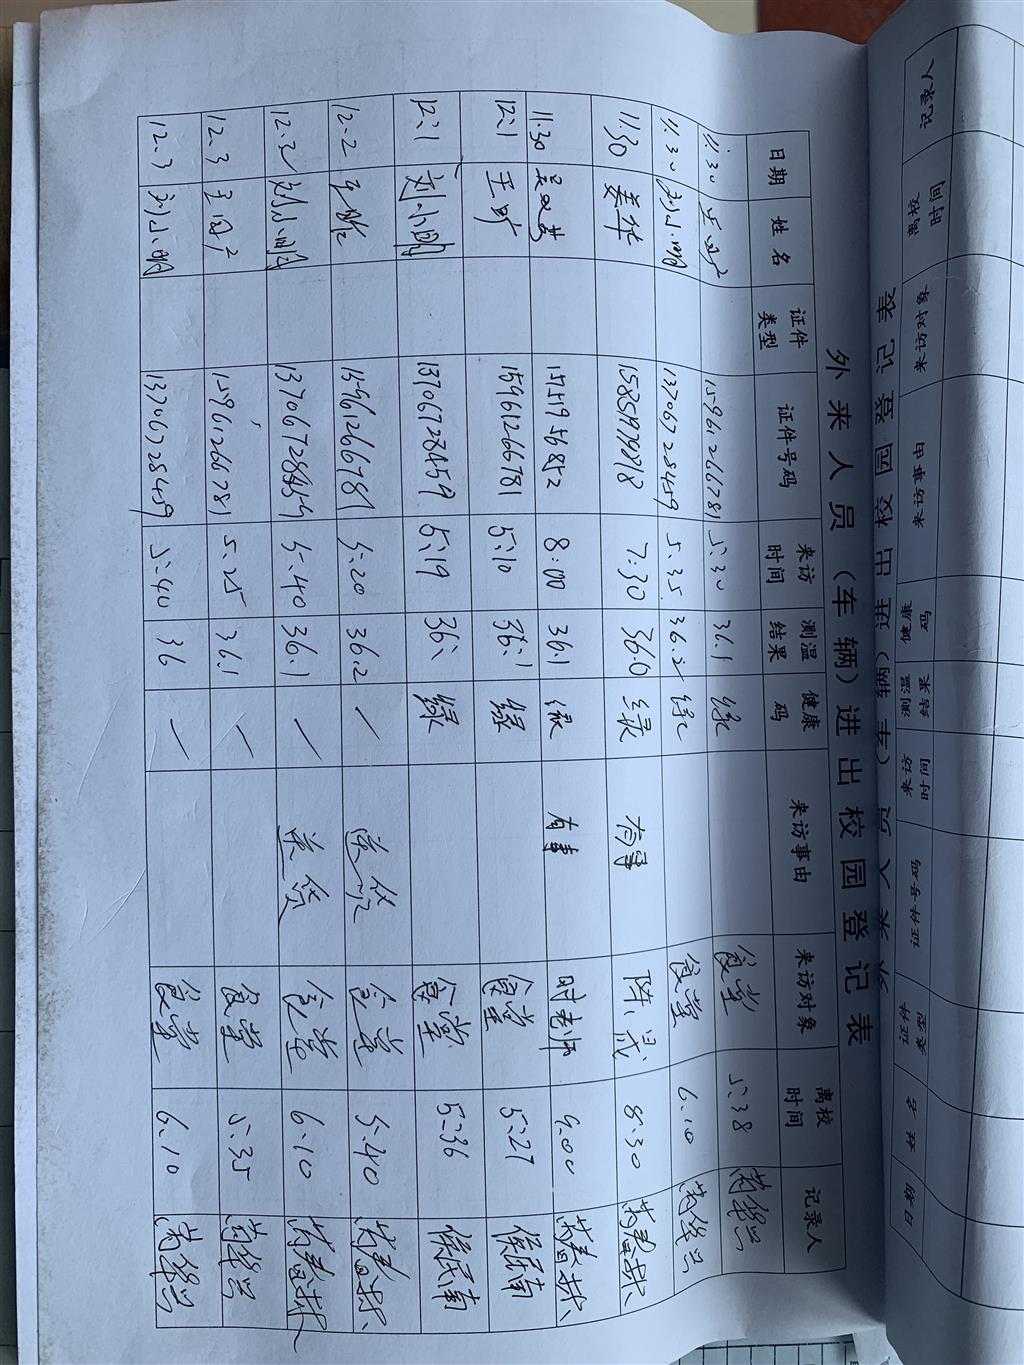 外来人员（车辆）进出校园登记表
日期 姓名 证件类型 证件号码 来访时间 测温结果 健康码 来访事由 来访对象 离校时间 记录人
11.30 15961266781 5:30 36.1 绿 食堂 5:38
11.30 刘小明 13706728459 5:35 36.2 绿 食堂 6.10
11.30 姜华 15851979898 7:30 36.0 绿 有事 8:30
11.30 8:00 36.1 绿 有事 时老师 9.00
12.1 王旷 15961266781 5:10 36.1 绿 食堂 5:27 侯乐南
12.1 刘小明 13706728459 5:19 36 绿 食堂 5:36 侯乐南
12.2 15961266781 5:20 36.2 一 送货 食堂 5:40
12.2 刘小明 13706728459 5:40 36.1 一 送货 食堂 6:10
12.3 15961266781 5:25 36.1 一 食堂 5:35
12.3 刘小明 13706728459 5:40 36 一 食堂 6.10
外来人员（车辆）进出校园登记表
日期 姓名 证件类型 证件号码 来访时间 测温结果 健康码 来访事由 来访对象 离校时间 记录人